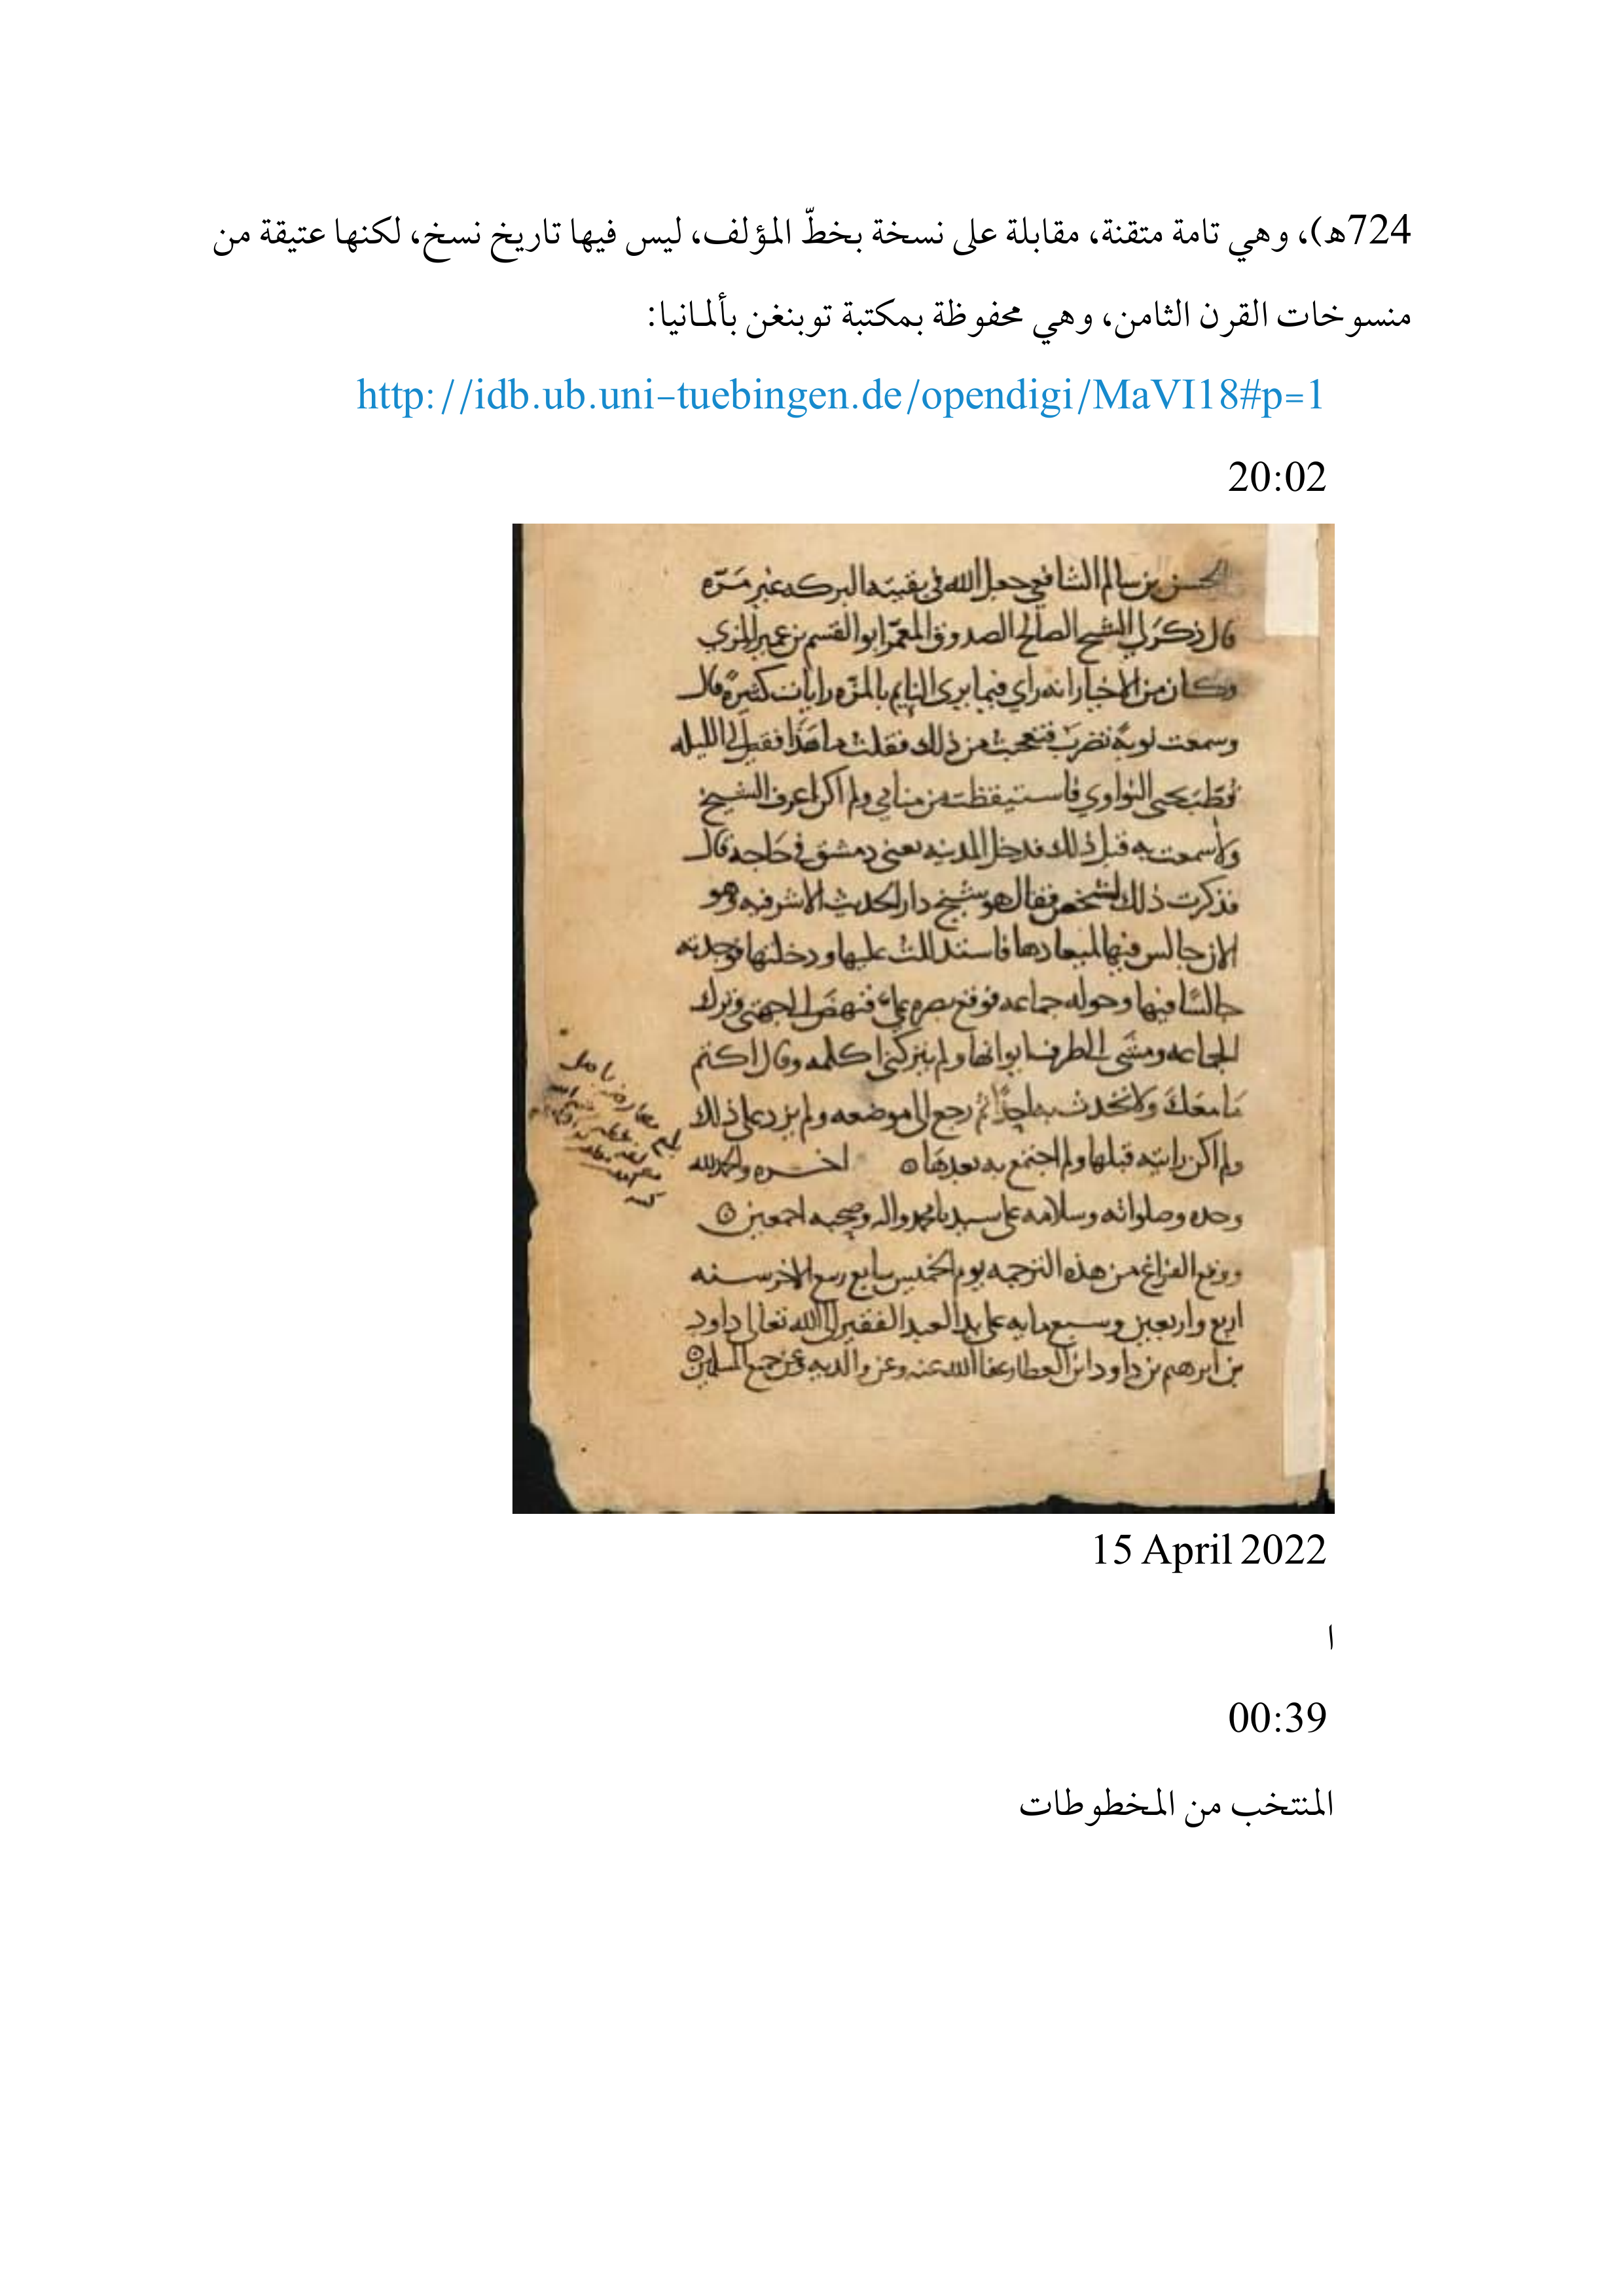 724هـ)، وهي تامة متقنة، مقابلة على نسخة بخطّ المؤلف، ليس فيها تاريخ نسخ، لكنها عتيقة من
منسوخات القرن الثامن، وهي محفوظة بمكتبة توبنغن بألمانيا:
http://idb.ub.uni-tuebingen.de/opendigi/MaVI18#p=1
20:02
الحسن بن سالم الشافعي جعل الله في بقيته البركه غير مَرّه
قال ذكَر لي الشيخ الصالح الصدوق المعمّر ابو القسم بن عمير المزي
وكان من الاخيار انه راي فيما يرى النايم بالمزّه رايات كثيرةً قال
وسمعت نوبةً تضرَب فتعجبت من ذلك فقلت ما هَذا فقيل لي الليله
قُطّبَ يحيى النواوي فاستيقظت من منامي ولم اكن اعرف الشيخ
ولا سمعت به قبل ذلك فدخل المدينه يعني دمشق في حَاجه قال
فذكرت ذلك لشخص فقال هو شيخ دار الحديث الاشرفيه وهو
الان جالس فيها لميعادها فاستدللت عليها ودخلتها فوجدته
جالسًا فيها وحوله جماعه فوقع بصره علي فنهضَ الى جهتي وترك
الجماعه ومشَى الى طرف ايوانها ولم يتركني اكلمه وقال اكتم
مَا معَكَ ولا تحدث به احدًا ثم رجع الى موضعه ولم يزد على ذلك
ولم اكن رايته قبلها ولم اجتمع به بعدهَا ه اخــره والحمد لله
وحده وصلواته وسلامه على سيدنا محمد واله وصحبه اجمعين
ووقع الفراغ من هذه الترجمه يوم الخميس سابع ربيع الاخر سنه
اربع واربعين وسبع مايه على يد العبد الفقير الى الله تعالى داود
بن ابرهيم بن داود ابن العطار عفا الله عنه وعن والديه وعن جميع المسلمين
15 April 2022
ا
00:39
المنتخب من المخطوطات